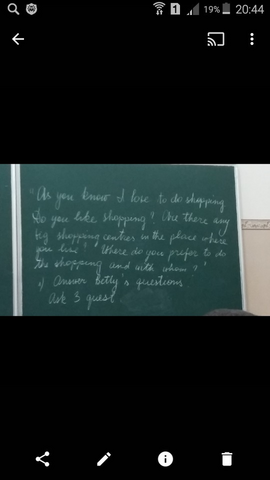 20:44
19%
1
"As you know I love to do shopping
Do you like shopping? Are there any
big shopping centres in the place where
you live? Where do you prefer to do
the shopping and with whom?"
Answer Betty's questions
Ask 3 quest.